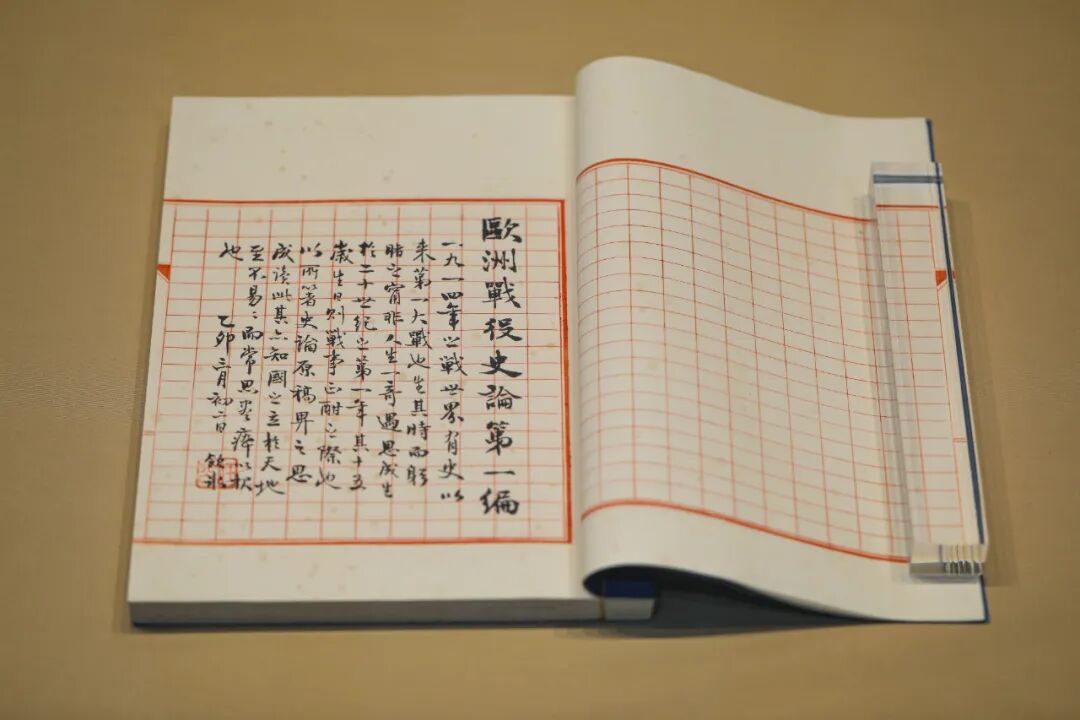 歐洲戰役史論第一編
一九一四年之戰世界有史以
来第一大戰也生其時而躬
睹之甯非人生一奇遇思成生
於二十世紀之第一年其十五
歲生日則戰事正酣之際也
以所箸史論原稿畀之思
成讀此其亦知國之立於天地
至不易〻而常思盡瘁以
也
乙卯三月初二日 飲冰